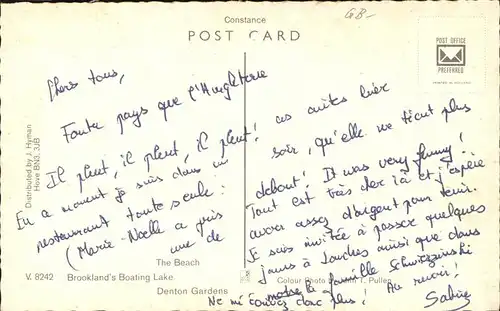 Constance
GB-
POST CARD
POST OFFICE
PREFERRED
Chers tous,
Foutu pays que l'Angleterre
Il pleut, il pleut, il pleut!
En ce moment je suis dans un
restaurant toute seule.
(Marie-Noelle a pris
une de
cuites hier
soir, qu'elle ne tient plus
debout! It was very funny!
Tout est très cher ici et j'espère
avoir assez d'argent pour tenir.
Je suis invitée à passer quelques
jours à Louches ainsi que dans
la famille
Au revoir!
Ne m'écrivez donc plus.
Sabine
Distributed by J. Hyman
Hove BN3, 3JB
The Beach
V. 8242 Brookland's Boating Lake.
Denton Gardens
Colour Photo T. Pullen